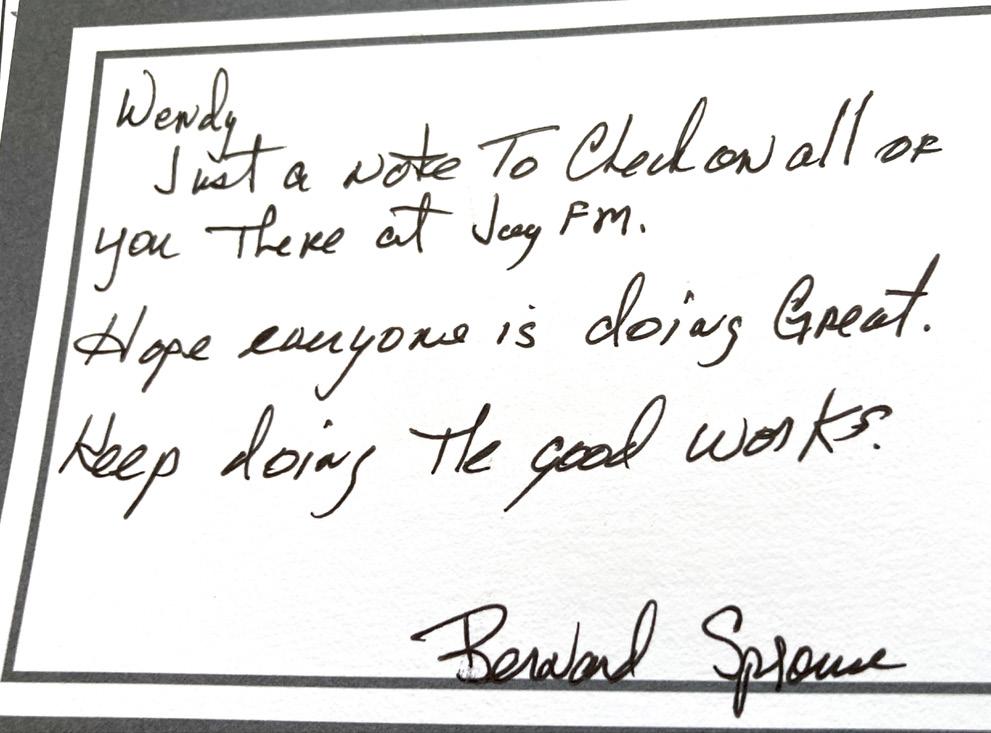 Wendy
Just a Note To Check on all of
you There at Joy FM.
Hope everyone is doing Great.
Keep doing The good works.
Bernard Sprouse